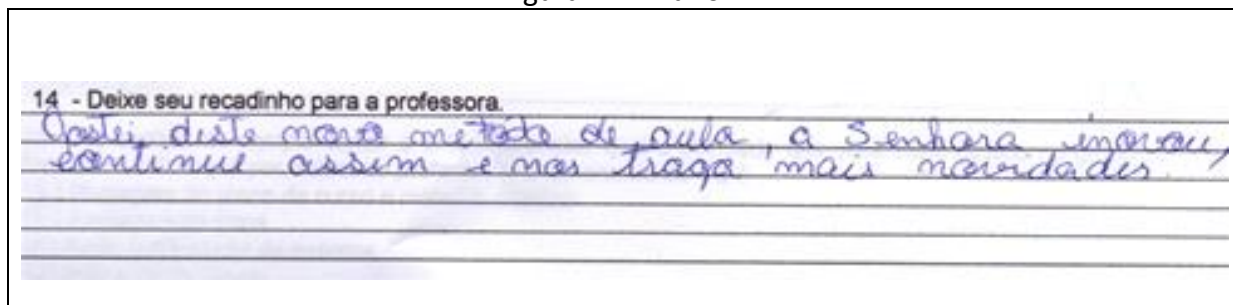 14 - Deixe seu recadinho para a professora.
Gostei deste novo metodo de aula, a Senhora inovou,
continue assim e nos traga mais novidades.